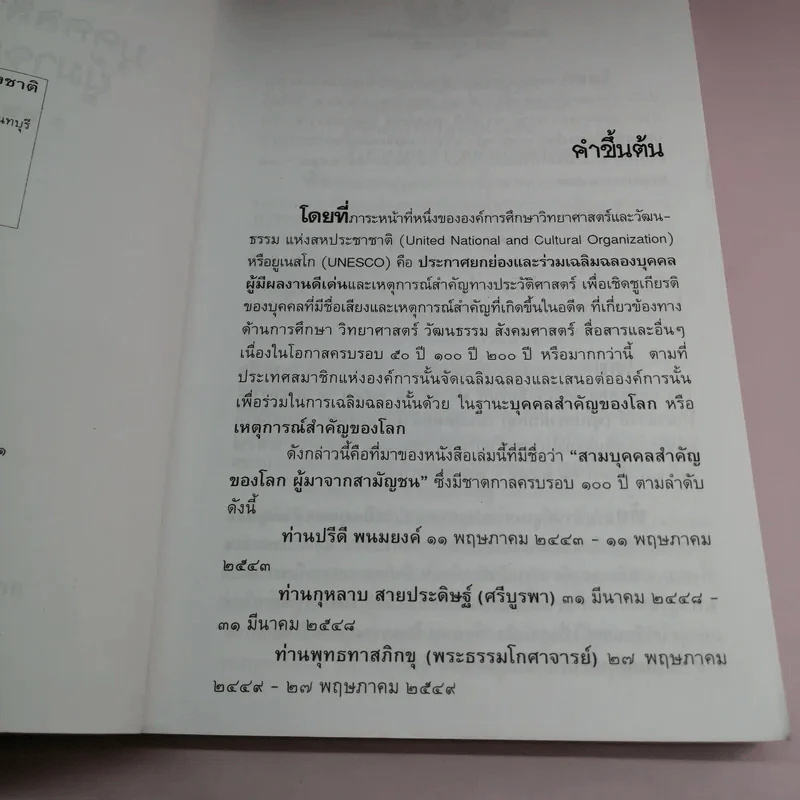 คำขึ้นต้น
โดยที่ภาระหน้าที่หนึ่งขององค์การศึกษาวิทยาศาสตร์และวัฒน-
ธรรม แห่งสหประชาชาติ (United National and Cultural Organization)
หรือยูเนสโก (UNESCO) คือ ประกาศยกย่องและร่วมเฉลิมฉลองบุคคล
ผู้มีผลงานดีเด่นและเหตุการณ์สำคัญทางประวัติศาสตร์ เพื่อเชิดชูเกียรติ
ของบุคคลที่มีชื่อเสียงและเหตุการณ์สำคัญที่เกิดขึ้นในอดีต ที่เกี่ยวข้องทาง
ด้านการศึกษา วิทยาศาสตร์ วัฒนธรรม สังคมศาสตร์ สื่อสารและอื่นๆ
เนื่องในโอกาสครบรอบ ๕๐ ปี ๑๐๐ ปี ๒๐๐ ปี หรือมากกว่านี้ ตามที่
ประเทศสมาชิกแห่งองค์การนั้นจัดเฉลิมฉลองและเสนอต่อองค์การนั้น
เพื่อร่วมในการเฉลิมฉลองนั้นด้วย ในฐานะบุคคลสำคัญของโลก หรือ
เหตุการณ์สำคัญของโลก
ดังกล่าวนี้คือที่มาของหนังสือเล่มนี้ที่มีชื่อว่า “สามบุคคลสำคัญ
ของโลก ผู้มาจากสามัญชน” ซึ่งมีชาตกาลครบรอบ ๑๐๐ ปี ตามลำดับ
ดังนี้
ท่านปรีดี พนมยงค์ ๑๑ พฤษภาคม ๒๔๔๓ - ๑๑ พฤษภาคม
๒๕๔๓
ท่านกุหลาบ สายประดิษฐ์ (ศรีบูรพา) ๓๑ มีนาคม ๒๔๔๘ -
๓๑ มีนาคม ๒๕๔๘
ท่านพุทธทาสภิกขุ (พระธรรมโกศาจารย์) ๒๗ พฤษภาคม
๒๔๔๙ - ๒๗ พฤษภาคม ๒๕๔๙